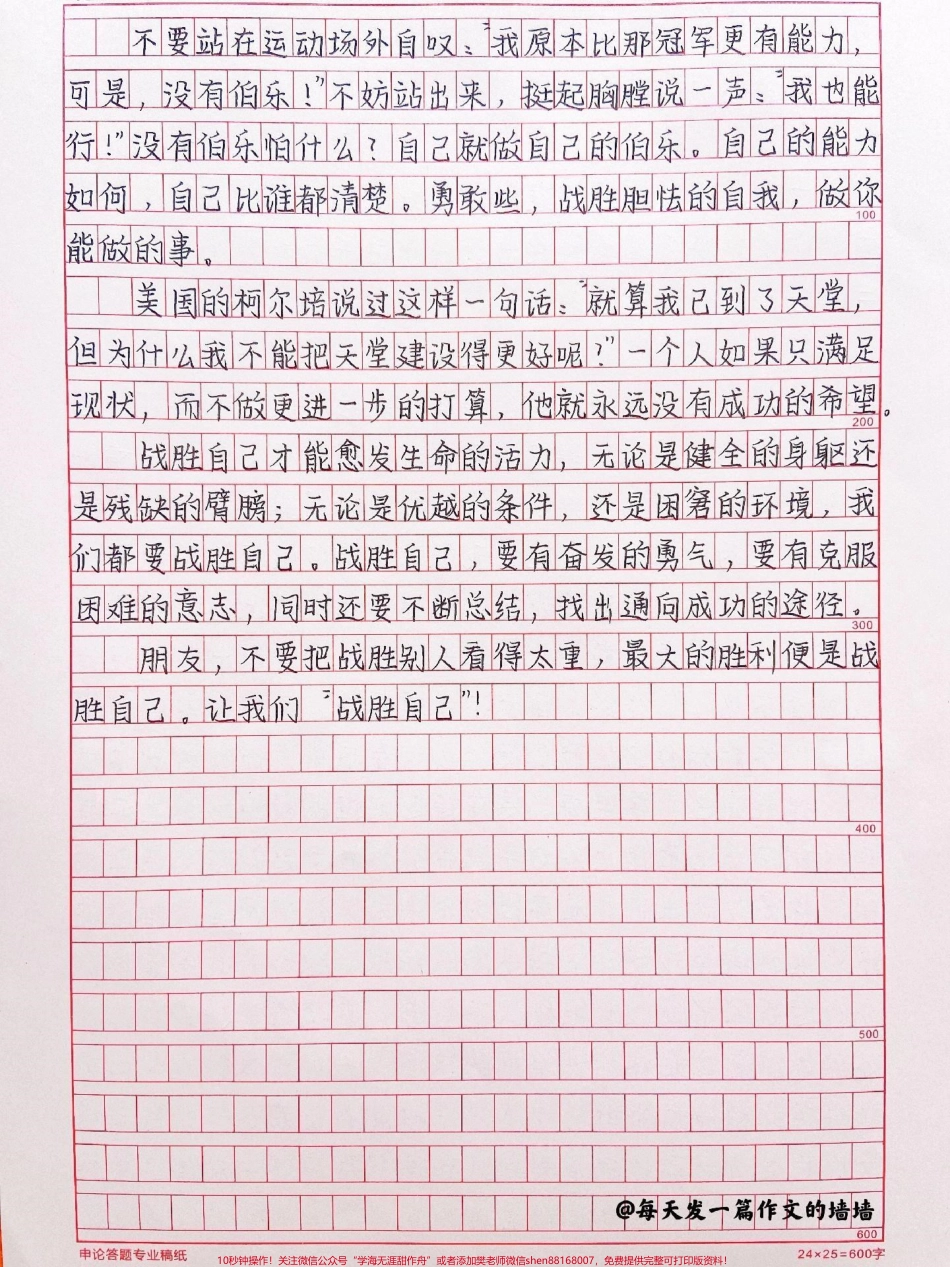 不要站在运动场外自叹："我原本比那冠军更有能力，
可是，没有伯乐！"不妨站出来，挺起胸膛说一声："我也能
行！"没有伯乐怕什么？自己就做自己的伯乐。自己的能力
如何，自己比谁都清楚。勇敢些，战胜胆怯的自我，做你
100
能做的事。
美国的柯尔培说过这样一句话："就算我已到了天堂，
但为什么我不能把天堂建设得更好呢？"一个人如果只满足
现状，而不做更进一步的打算，他就永远没有成功的希望。
200
战胜自己才能愈发生命的活力，无论是健全的身躯还
是残缺的臂膀；无论是优越的条件，还是困窘的环境，我
们都要战胜自己。战胜自己，要有奋发的勇气，要有克服
困难的意志，同时还要不断总结，找出通向成功的途径。
300
朋友，不要把战胜别人看得太重，最大的胜利便是战
胜自己。让我们"战胜自己"！
400
500
@每天发一篇作文的墙墙
600
申论答题专业稿纸
24×25=600字
10秒钟操作！关注微信公众号"学海无涯甜作舟"或者添加樊老师微信shen88168007，免费提供完整可打印版资料！